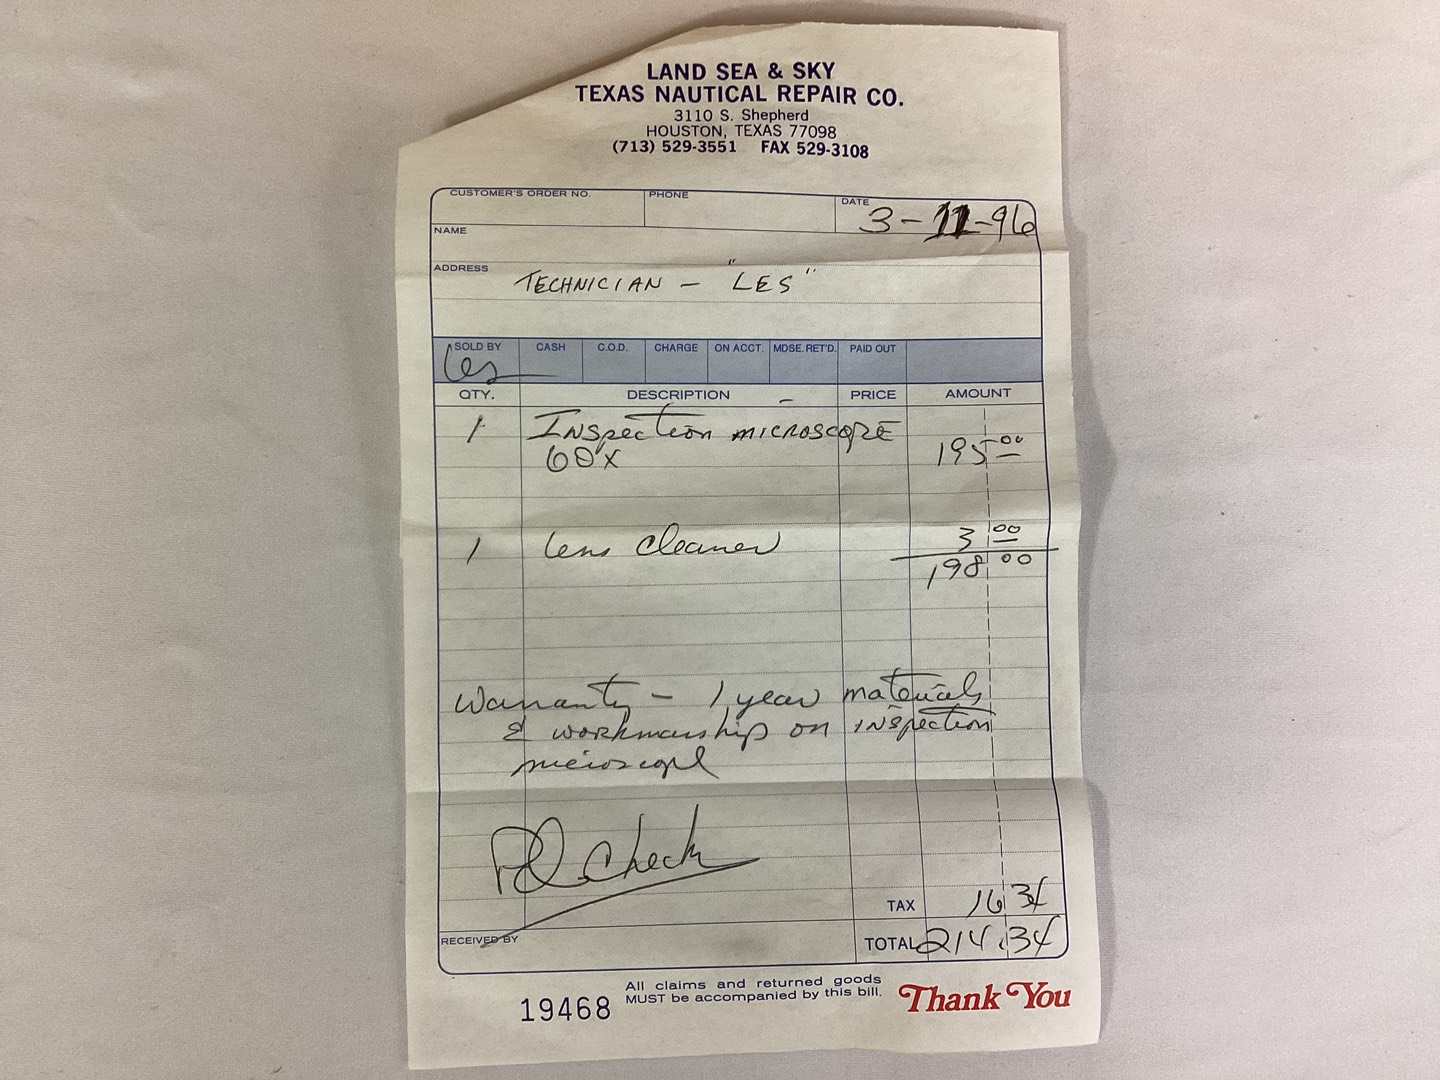 LAND SEA & SKY
TEXAS NAUTICAL REPAIR CO.
3110 S. Shepherd
HOUSTON, TEXAS 77098
(713) 529-3551 FAX 529-3108
CUSTOMER'S ORDER NO. PHONE DATE 3-11-96
NAME
ADDRESS TECHNICIAN - "LES"
SOLD BY CASH C.O.D. CHARGE ON ACCT. MDSE. RET'D. PAID OUT
Les
QTY. DESCRIPTION PRICE AMOUNT
1 Inspection microscope
60x 195 00
1 lens cleaner 3 00
198 00
Warranty - 1 year materials
& workmanship on inspection
microscope
Pd Check
TAX 16 34
RECEIVED BY TOTAL 214.34
19468
All claims and returned goods
MUST be accompanied by this bill.
Thank You